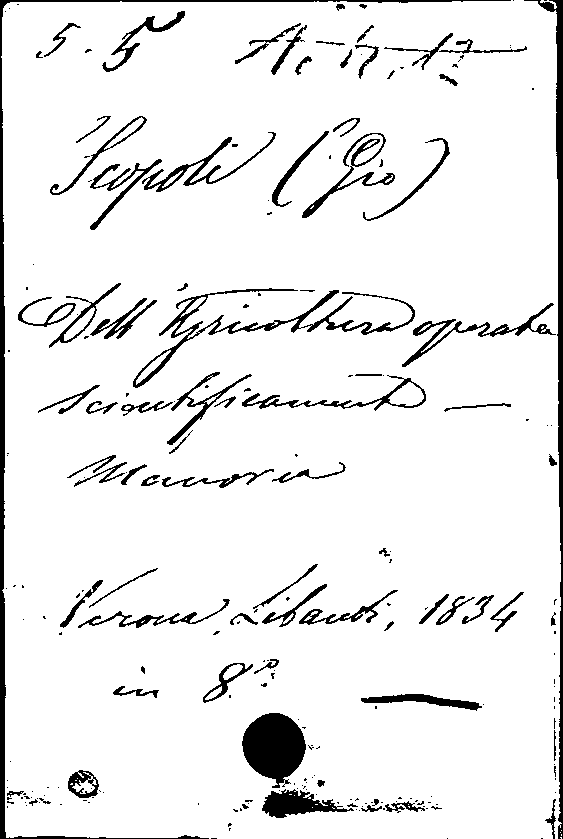 5. 5 A. h. 12
Scopoli (Gio)
Dell'Agricoltura operata
scientificamente —
Memoria
Verona, Libanti, 1834
in 8º